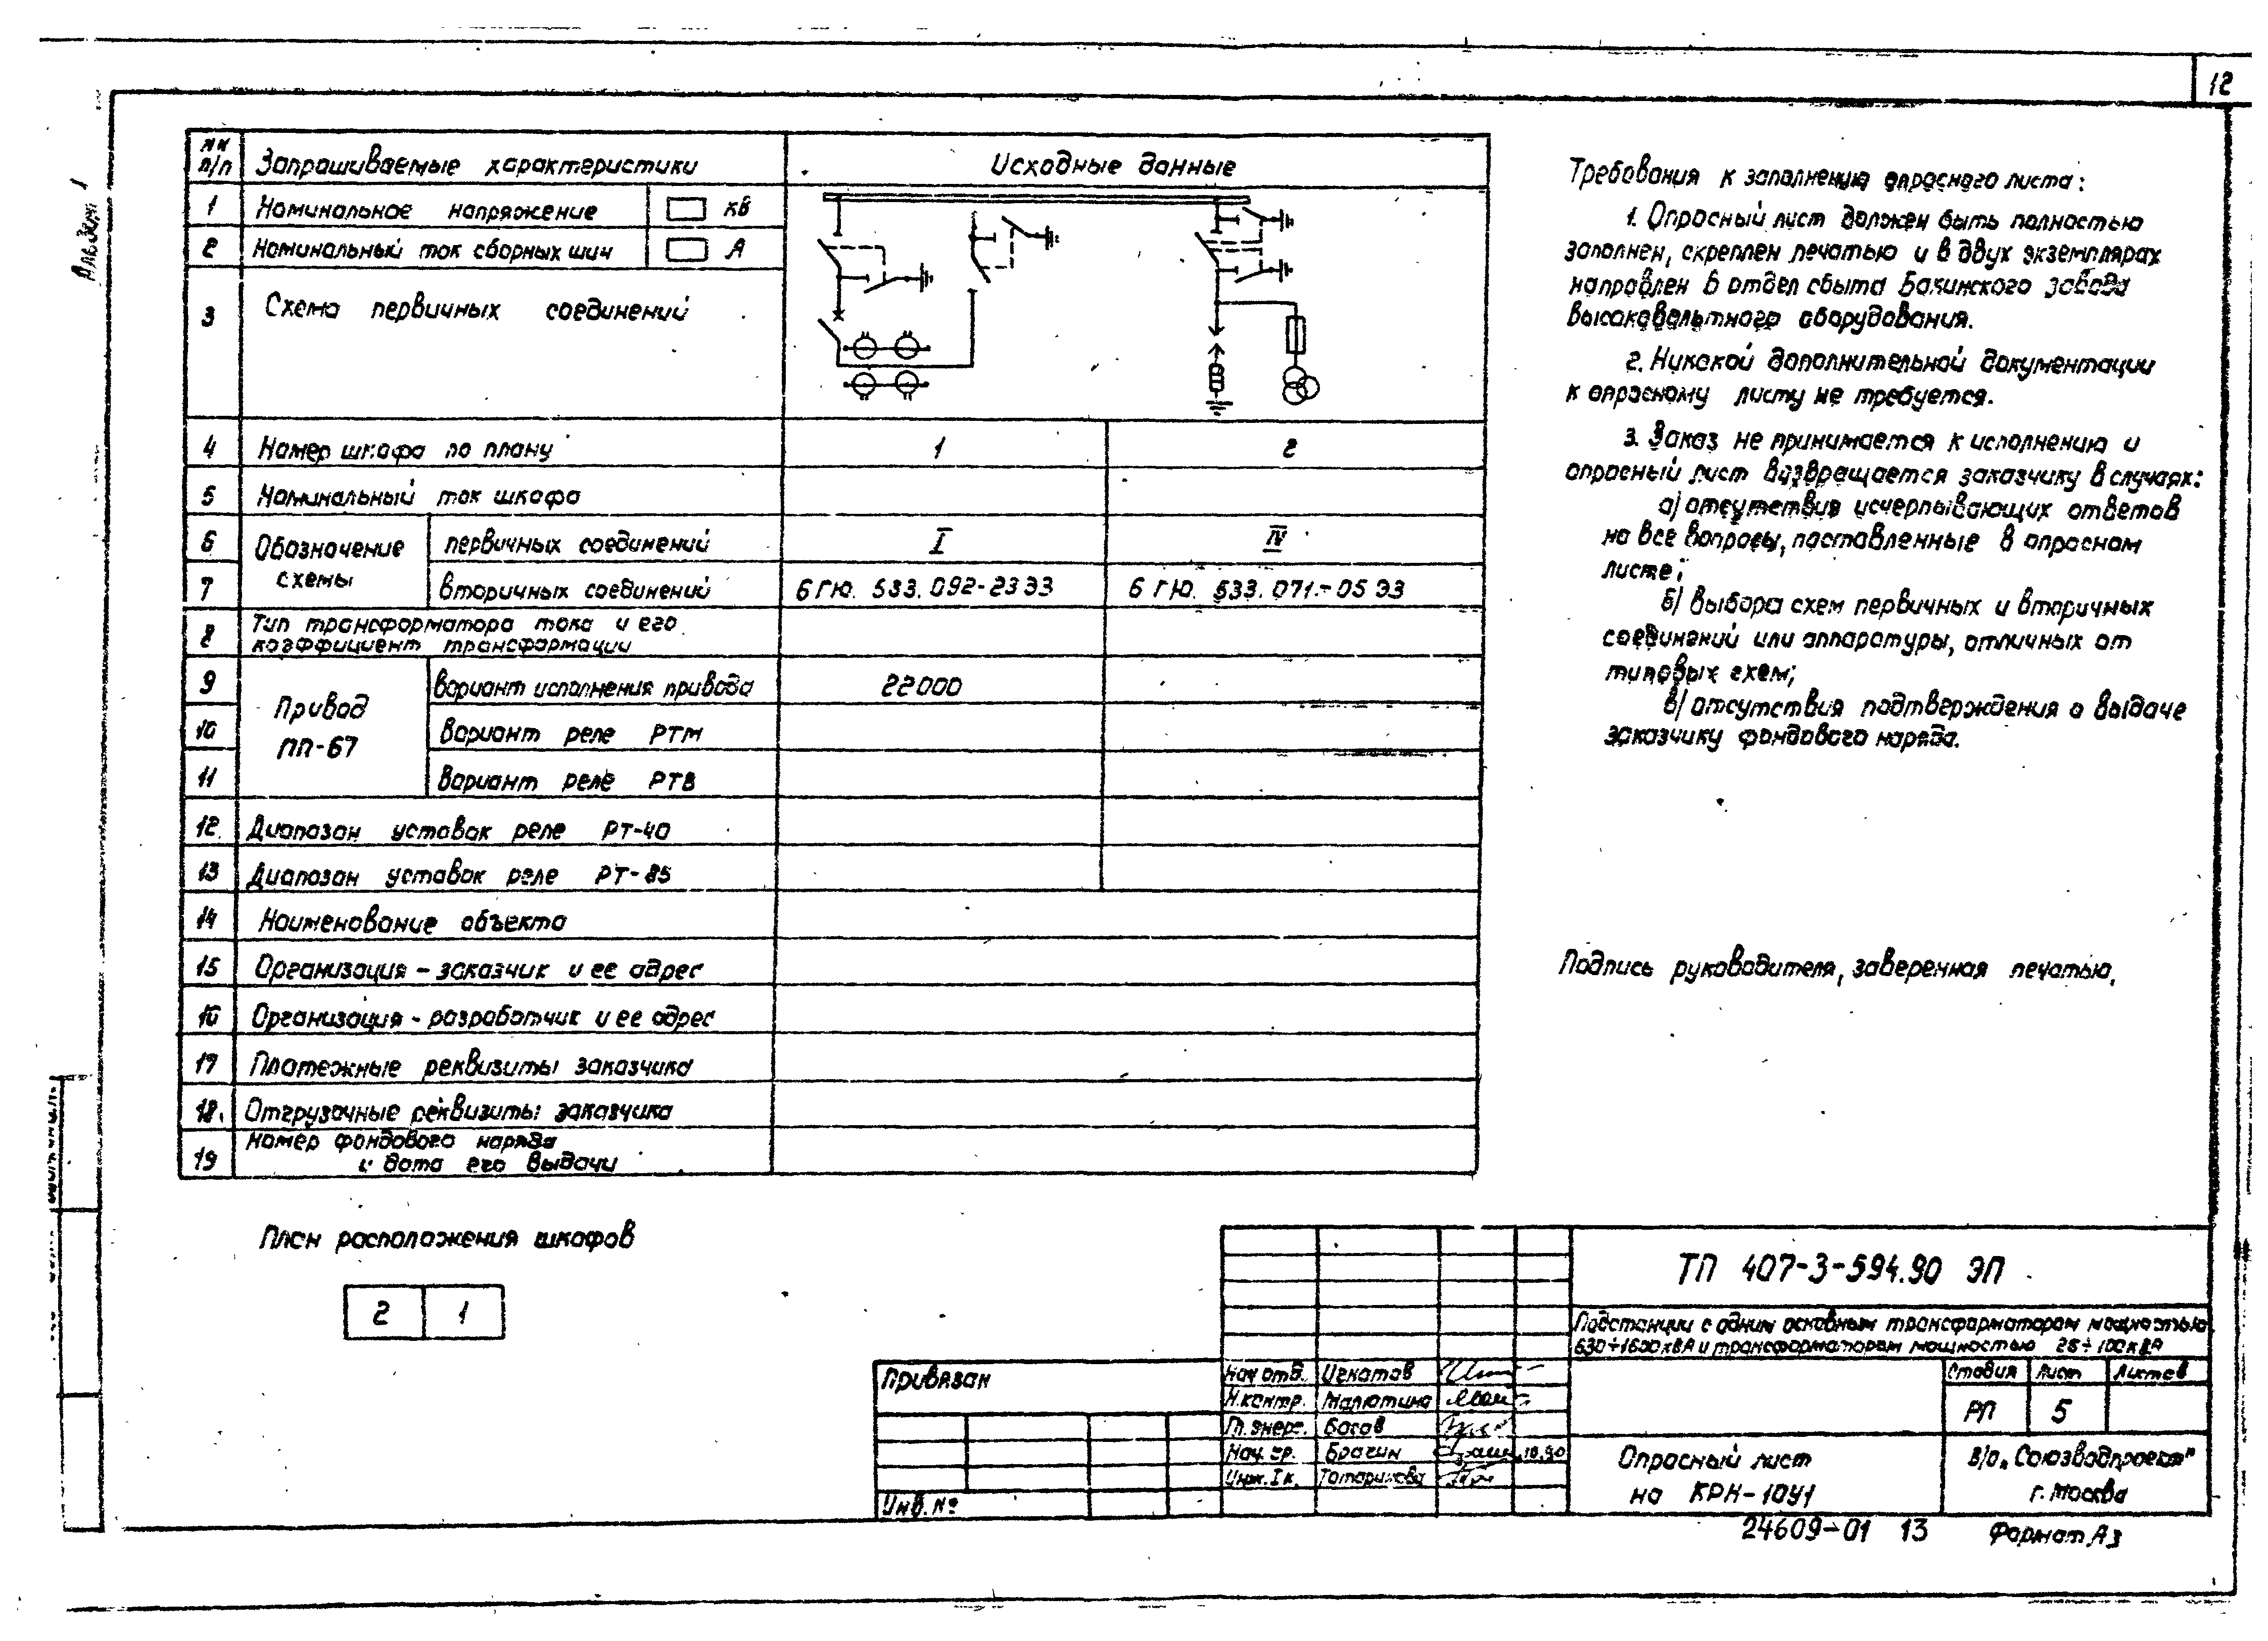 12
Альбом 1
NN п/п Запрашиваемые характеристики Исходные данные
1 Номинальное напряжение кВ
2 Номинальный ток сборных шин А
3 Схема первичных соединений
4 Номер шкафа по плану 1 2
5 Номинальный ток шкафа
Обозначение схемы
6 первичных соединений I IV
7 вторичных соединений 6 ГЮ. 533. 092-23 ЭЗ 6 ГЮ. 533. 071.-05 ЭЗ
8 Тип трансформатора тока и его
коэффициент трансформации
Привод ПП-67
9 вариант исполнения привода 22000
10 вариант реле РТМ
11 вариант реле РТВ
12. Диапазон уставок реле РТ-40
13 Диапазон уставок реле РТ-85
14 Наименование объекта
15 Организация - заказчик и ее адрес
16 Организация - разработчик и ее адрес
17 Платежные реквизиты заказчика
18. Отгрузочные реквизиты заказчика
19 Номер фондового наряда
и дата его выдачи
Требования к заполнению опросного листа:
1. Опросный лист должен быть полностью
заполнен, скреплен печатью и в двух экземплярах
направлен в отдел сбыта Бакинского завода
высоковольтного оборудования.
2. Никакой дополнительной документации
к опросному листу не требуется.
3. Заказ не принимается к исполнению и
опросный лист возвращается заказчику в случаях:
а) отсутствия исчерпывающих ответов
на все вопросы, поставленные в опросном
листе;
б) выбора схем первичных и вторичных
соединений или аппаратуры, отличных от
типовых схем;
в) отсутствия подтверждения о выдаче
заказчику фондового наряда.
Подпись руководителя, заверенная печатью.
План расположения шкафов
2 1
ТП 407-3-594.90 ЭП
Подстанции с одним основным трансформатором мощностью
630÷1600 кВА и трансформатором мощностью 25÷100 кВА
Привязан
Инв. №
Нач отд. Игнатов
Н. контр. Малютина
Гл. энерг. Босов
Нач. гр. Брагин 10.90
Инж. I к. Татаринова
Стадия Лист Листов
РП 5
Опросный лист
на КРН-10У1
В/О „Союзводпроект"
г. Москва
24609-01 13 Формат А3